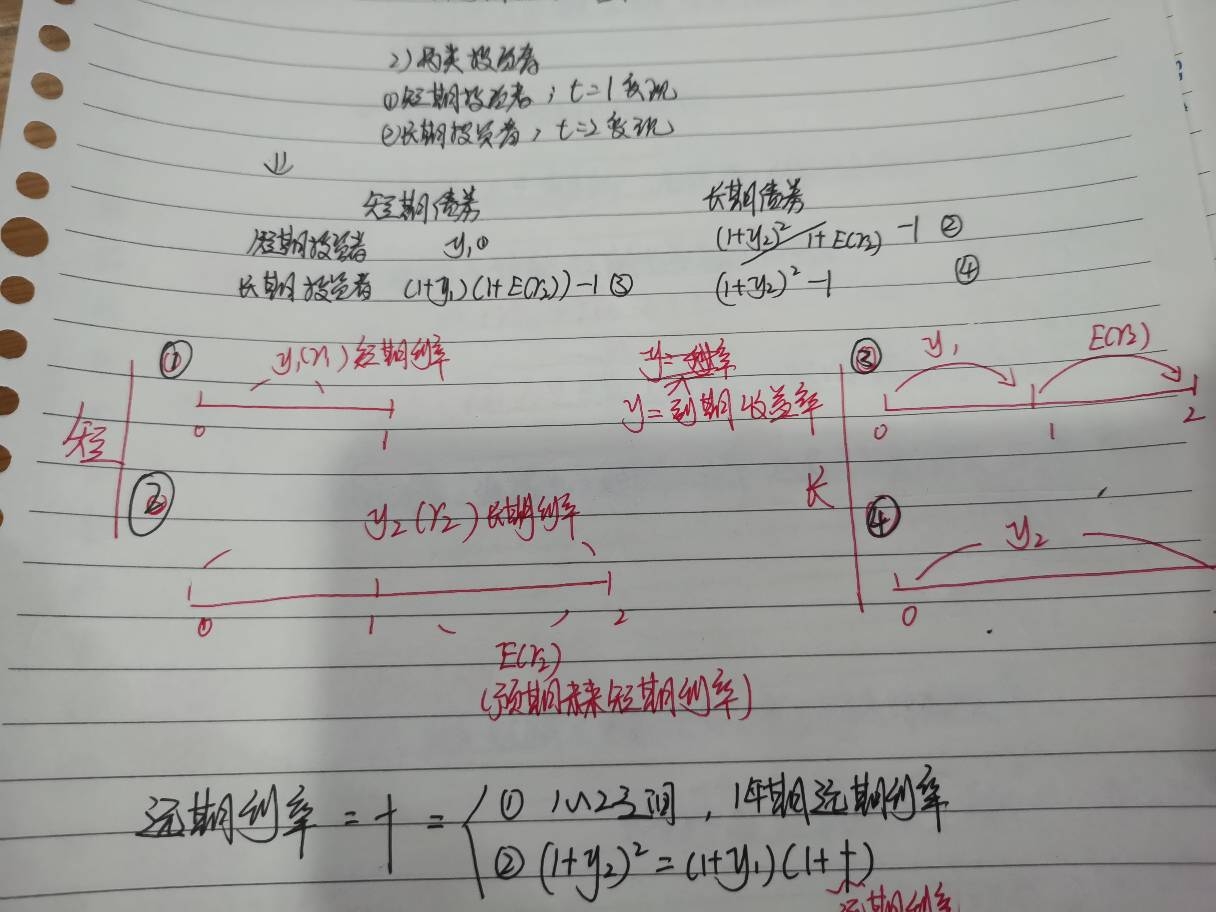 2) 两类投资者
①短期投资者，t=1变现
②长期投资者，t=2变现
⇓
短期债券 长期债券
短期投资者 y₁ ① (1+y₂)²/1+E(r₂) -1 ②
长期投资者 (1+y₁)(1+E(r₂))-1 ③ (1+y₂)²-1 ④
① y₁(r₁)短期利率
y=到期收益率
③ y₁ E(r₂)
0 1
0 1 2
短
长
② y₂(r₂)长期利率
④ y₂
0 1 2
0
E(r₂)
(预期未来短期利率)
远期利率 = f = { ① 1~2之间，1年期远期利率
② (1+y₂)² = (1+y₁)(1+f)
远期利率